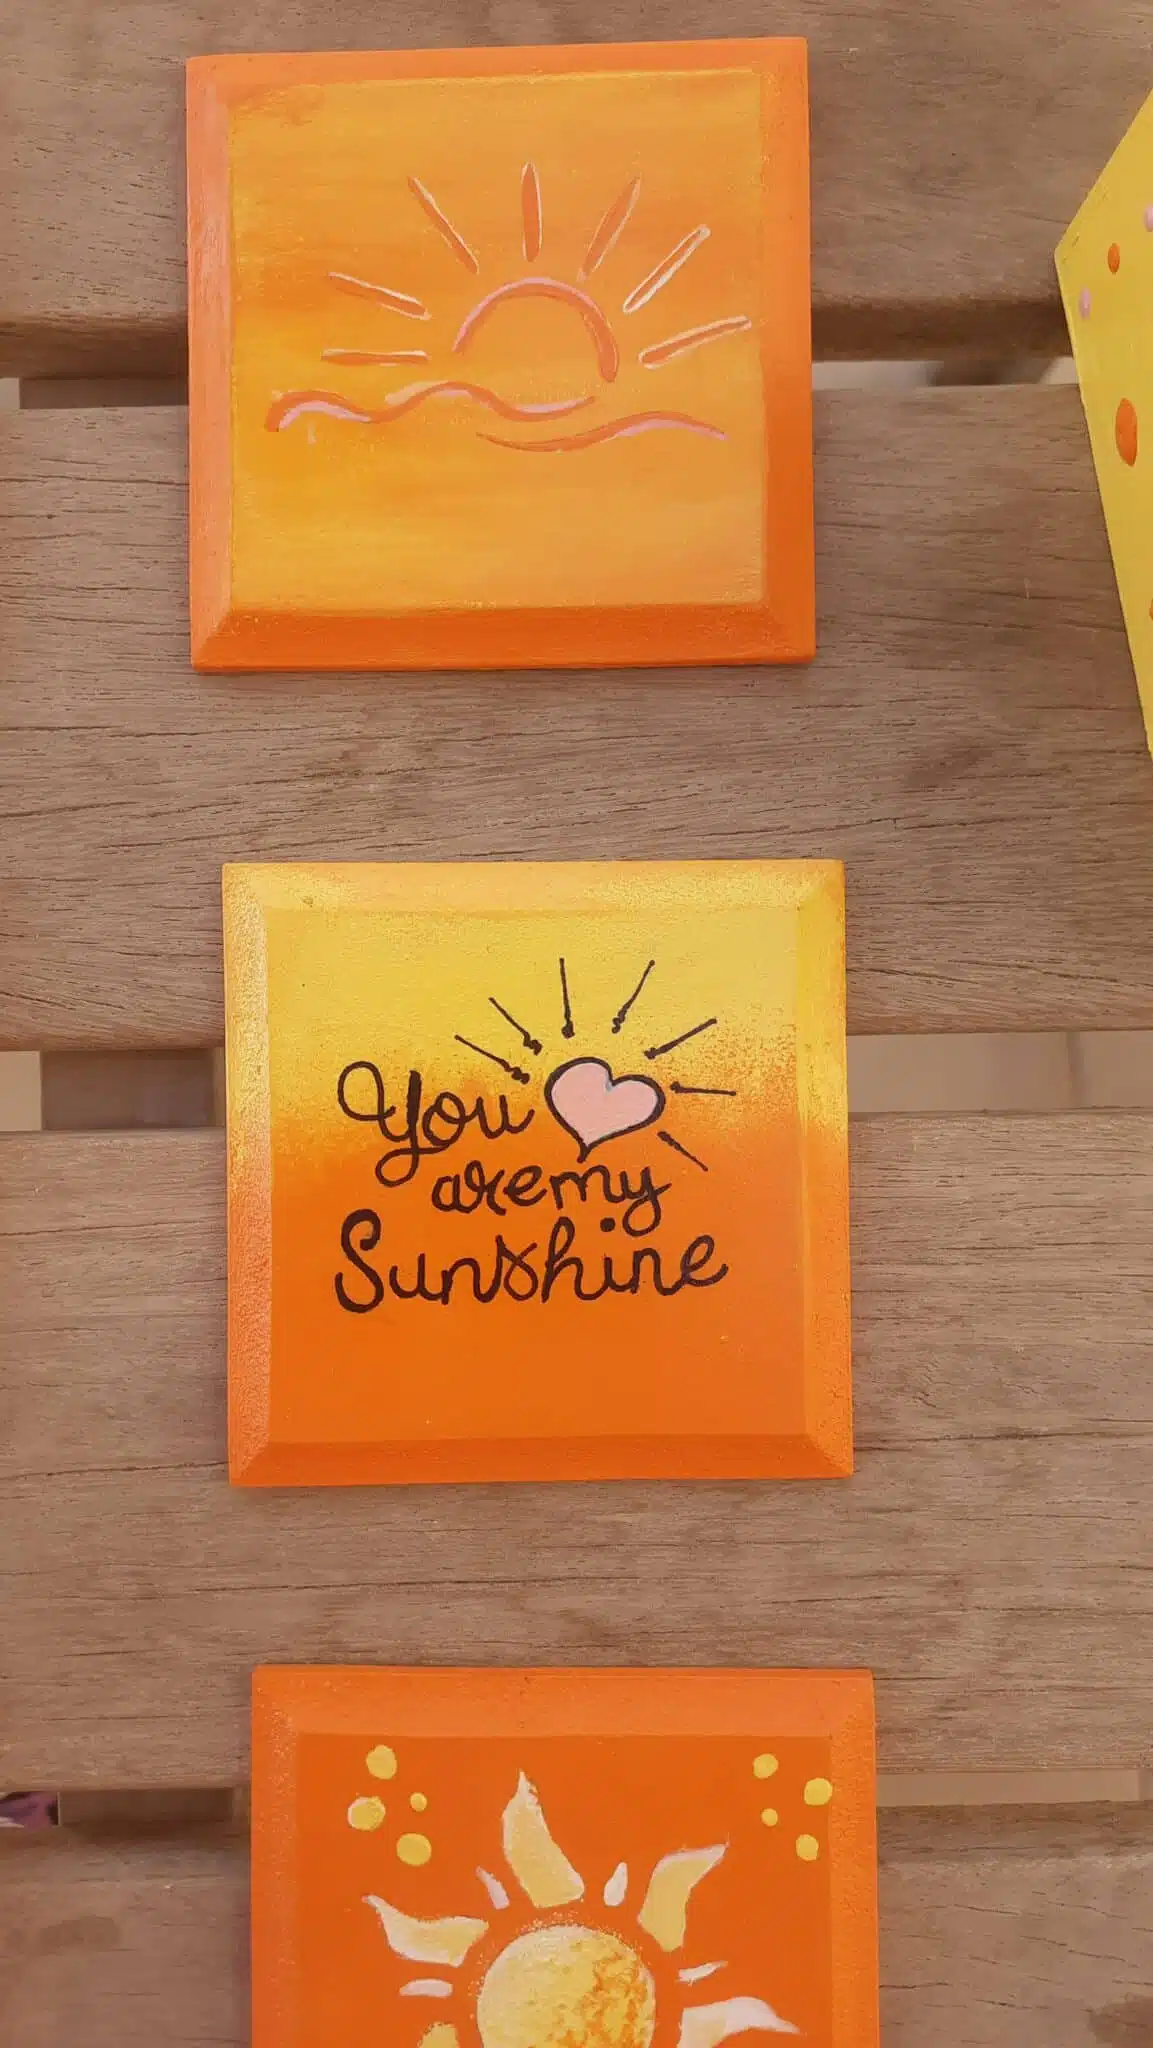 You
are my
Sunshine